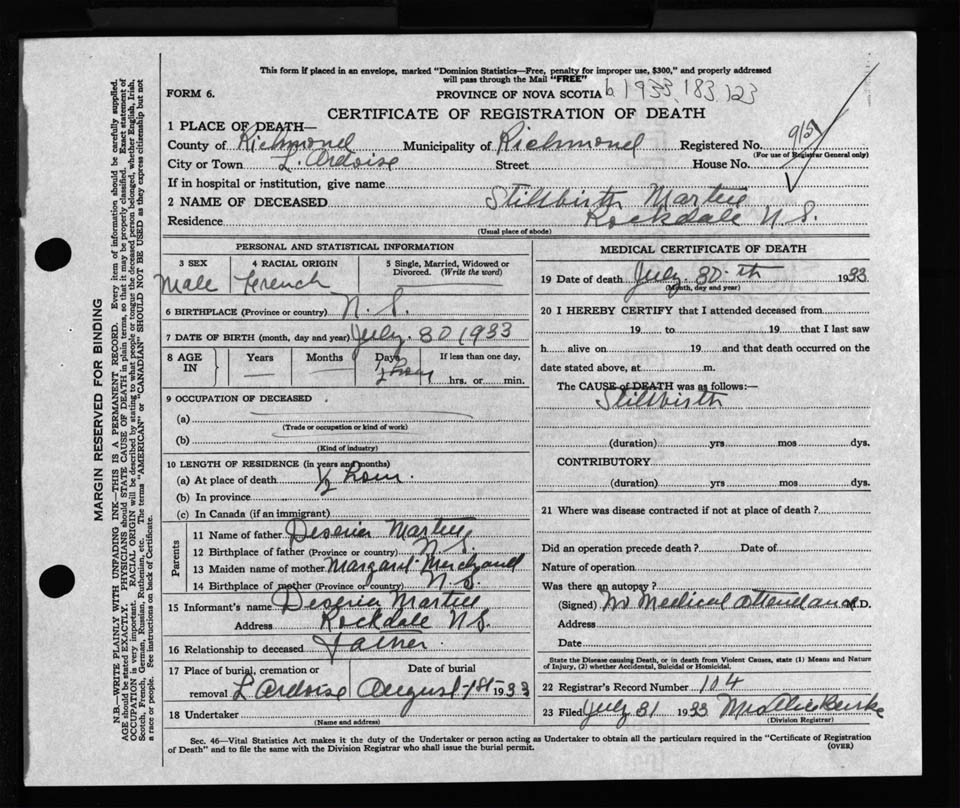 This form if placed in an envelope, marked "Dominion Statistics—Free, penalty for improper use, $300," and properly addressed
will pass through the Mail "FREE"
FORM 6.
PROVINCE OF NOVA SCOTIA b. 1933.183.123
CERTIFICATE OF REGISTRATION OF DEATH
1 PLACE OF DEATH—
County of Richmond Municipality of Richmond Registered No. 915
(For use of Registrar General only)
City or Town L'Ardoise Street House No.
If in hospital or institution, give name
2 NAME OF DECEASED Stillbirth Martell
Residence Rockdale N.S.
(Usual place of abode)
PERSONAL AND STATISTICAL INFORMATION
3 SEX 4 RACIAL ORIGIN 5 Single, Married, Widowed or Divorced. (Write the word)
Male French
6 BIRTHPLACE (Province or country) N.S.
7 DATE OF BIRTH (month, day and year) July. 30 1933
8 AGE IN Years Months Days If less than one day,
½ hour hrs. or min.
9 OCCUPATION OF DECEASED
(a)
(Trade or occupation or kind of work)
(b)
(Kind of industry)
10 LENGTH OF RESIDENCE (in years and months)
(a) At place of death ½ hour.
(b) In province
(c) In Canada (if an immigrant)
Parents
11 Name of father Martell
12 Birthplace of father (Province or country) N.S.
13 Maiden name of mother Margaret
14 Birthplace of mother (Province or country) N.S.
15 Informant's name Martell
Address Rockdale N.S.
16 Relationship to deceased Father
17 Place of burial, cremation or Date of burial
removal L'Ardoise August 1st 1933
18 Undertaker
(Name and address)
MEDICAL CERTIFICATE OF DEATH
19 Date of death July. 30.th 1933
(Month, day and year)
20 I HEREBY CERTIFY that I attended deceased from
19 to 19 that I last saw
h alive on 19 and that death occurred on the
date stated above, at m.
The CAUSE of DEATH was as follows:—
Stillbirth
(duration) yrs mos dys.
CONTRIBUTORY
(duration) yrs mos dys.
21 Where was disease contracted if not at place of death?
Did an operation precede death? Date of
Nature of operation
Was there an autopsy?
(Signed) No Medical attendance M.D.
Address
Date
State the Disease causing Death, or in death from Violent Causes, state (1) Means and Nature
of Injury, (2) whether Accidental, Suicidal or Homicidal.
22 Registrar's Record Number 104
23 Filed July 31 1933 Mrs Alice Burke
(Division Registrar)
Sec. 46—Vital Statistics Act makes it the duty of the Undertaker or person acting as Undertaker to obtain all the particulars required in the "Certificate of Registration
of Death" and to file the same with the Division Registrar who shall issue the burial permit.
(OVER)
MARGIN RESERVED FOR BINDING
N.B.—WRITE PLAINLY WITH UNFADING INK—THIS IS A PERMANENT RECORD. Every item of information should be carefully supplied.
AGE should be stated EXACTLY. PHYSICIANS should STATE CAUSE OF DEATH in plain terms, so that it may be properly classified. Exact statement of
OCCUPATION is very important. RACIAL ORIGIN will be described by stating to what people or tongue the deceased person belonged, whether English, Irish,
Scotch, French, German, Russian, Ruthenian, etc. The terms "AMERICAN" or "CANADIAN" SHOULD NOT BE USED as they express citizenship but not
a race or people. See instructions on back of Certificate.